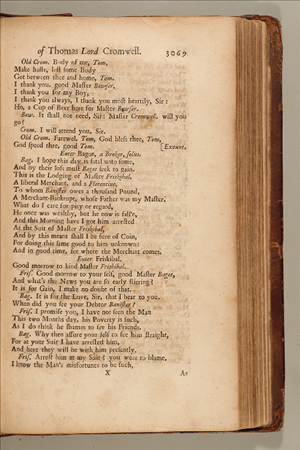 of Thomas Lord Cromwell. 3069
Old Crom. Body of me, Tom,
Make haste, lest some Body
Get between thee and home, Tom.
I thank you, good Master Bowser,
I thank you for my Boy,
I thank you always, I thank you most heartily, Sir:
Ho, a Cup of Beer here for Master Bowser.
Bow. It shall not need, Sir: Master Cromwel, will you
go?
Crom. I will attend you, Sir.
Old Crom. Farewel, Tom, God bless thee, Tom,
God speed thee, good Tom. [Exeunt.
Enter Bagot, a Broker, solus.
Bag. I hope this day is fatal unto some,
And by their loss must Bagot seek to gain.
This is the Lodging of Master Friskibal,
A liberal Merchant, and a Florentine,
To whom Banister owes a thousand Pound,
A Merchant-Bankrupt, whose Father was my Master.
What do I care for pity or regard,
He once was wealthy, but he now is fall'n,
And this Morning have I got him arrested
At the Suit of Master Friskibal,
And by this means shall I be sure of Coin,
For doing this same good to him unknown:
And in good time, see where the Merchant comes.
Enter Friskibal.
Good morrow to kind Master Friskibal.
Fris. Good morrow to your self, good Master Bagot,
And what's the News you are so early stirring?
It is for Gain, I make no doubt of that.
Bag. It is for the Love, Sir, that I bear to you.
When did you see your Debtor Banister?
Fris. I promise you, I have not seen the Man
This two Months day, his Poverty is such,
As I do think he shames to see his Friends.
Bag. Why then assure your self to see him straight,
For at your Suit I have arrested him,
And here they will be with him presently.
Fris. Arrest him at my Suit? you were to blame,
I know the Man's misfortunes to be such,
X As